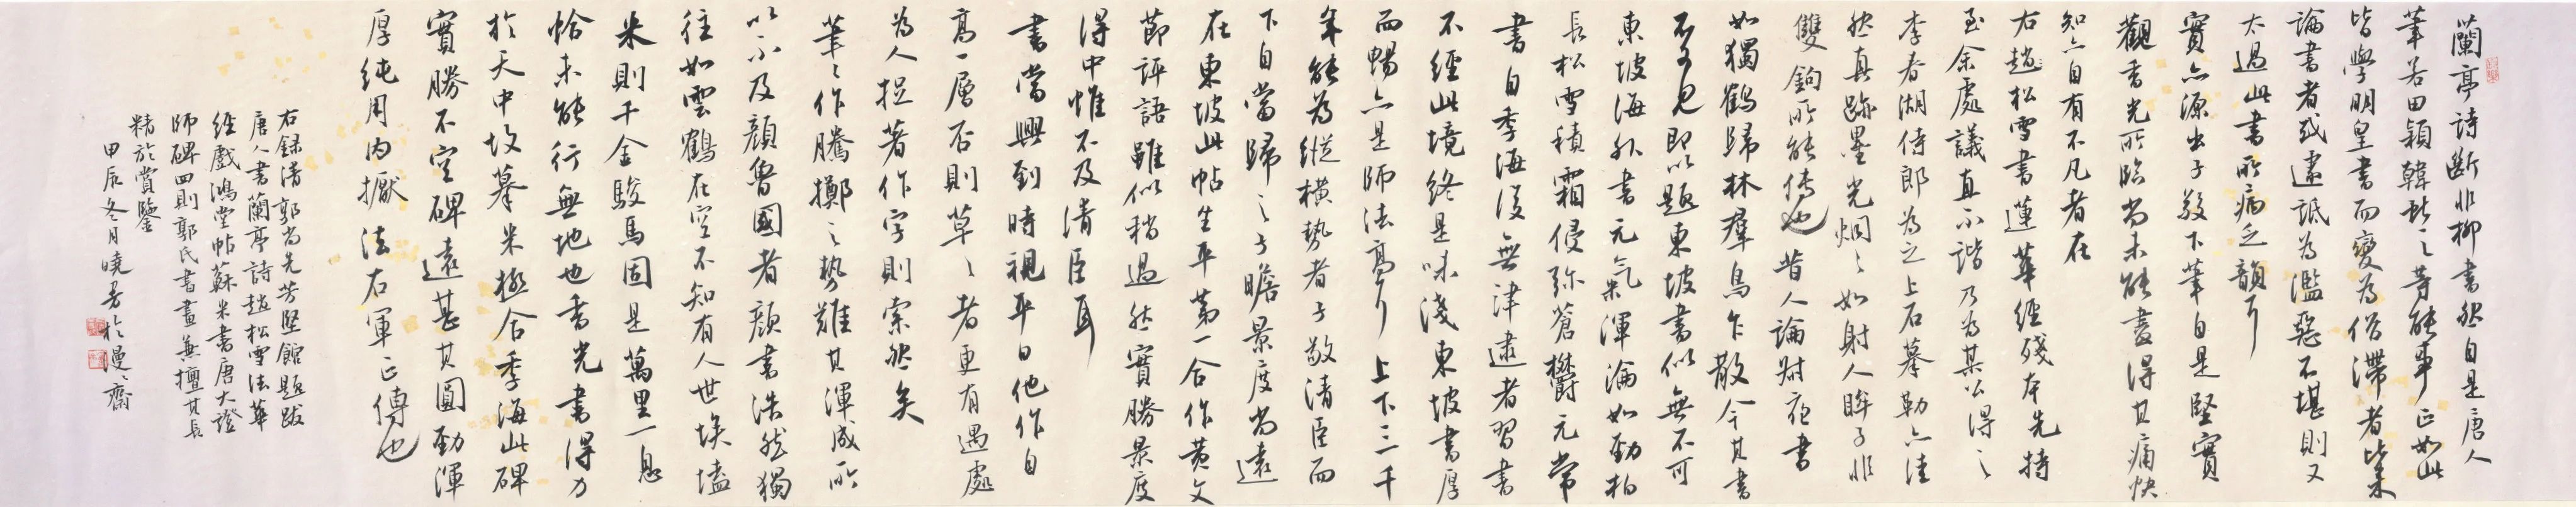 蘭亭詩斷非柳書然自是唐人
筆若田穎韓秋之等能事正如此
皆學明皇書而變為俗滯者皆未
論書者或遽詆為濫惡不堪則又
太過此書所病乏韻耳
實亦源出子敬下筆自是堅實
觀香光所臨尚未能盡得其痛快
知亦自有不凡者在
右趙松雪書蓮華經殘本先特
至余處議直不諧乃為某公得之
李春湖侍郎為之上石摹勒亦佳
然真跡墨光炯炯如射人眸子非
雙鉤所能傳也昔人論尉遲書
如獨鶴歸林群鳥乍散今其書
不可見即以題東坡書似無不可
東坡海外書元氣渾淪如勁柏
長松雪積霜侵弥蒼欝元常
書自季海後無津逮者習書
不經此境終是味淺東坡書厚
而暢亦是師法高耳上下三千
年能為縱橫勢者子敬清臣而
下自當歸之子瞻景度尚遠
在東坡此帖生平第一合作黄文
節評語雖似稍過然實勝景度
得中惟不及清臣耳
書當興到時視平日他作自
高一層否則草草者更有過處
為人捉著作字則索然矣
筆筆作騰擲之勢難其渾成所
以不及顏魯國者顏書浩然獨
往如雲鶴在空不知有人世埃壒
米則千金駿馬固是萬里一息
恰未能行無地也香光書得力
於天中坟摹米極合季海此碑
實勝不空碑遠甚其圓勁渾
厚純用内擫法右軍正傳也
右録清郭尚先芳堅館題跋
唐人書蘭亭詩趙松雪法華
經戲鴻堂帖蘇米書唐大證
師碑四則郭氏書畫兼擅其長
精於賞鑒
甲辰冬月曉芳於漫漫齋